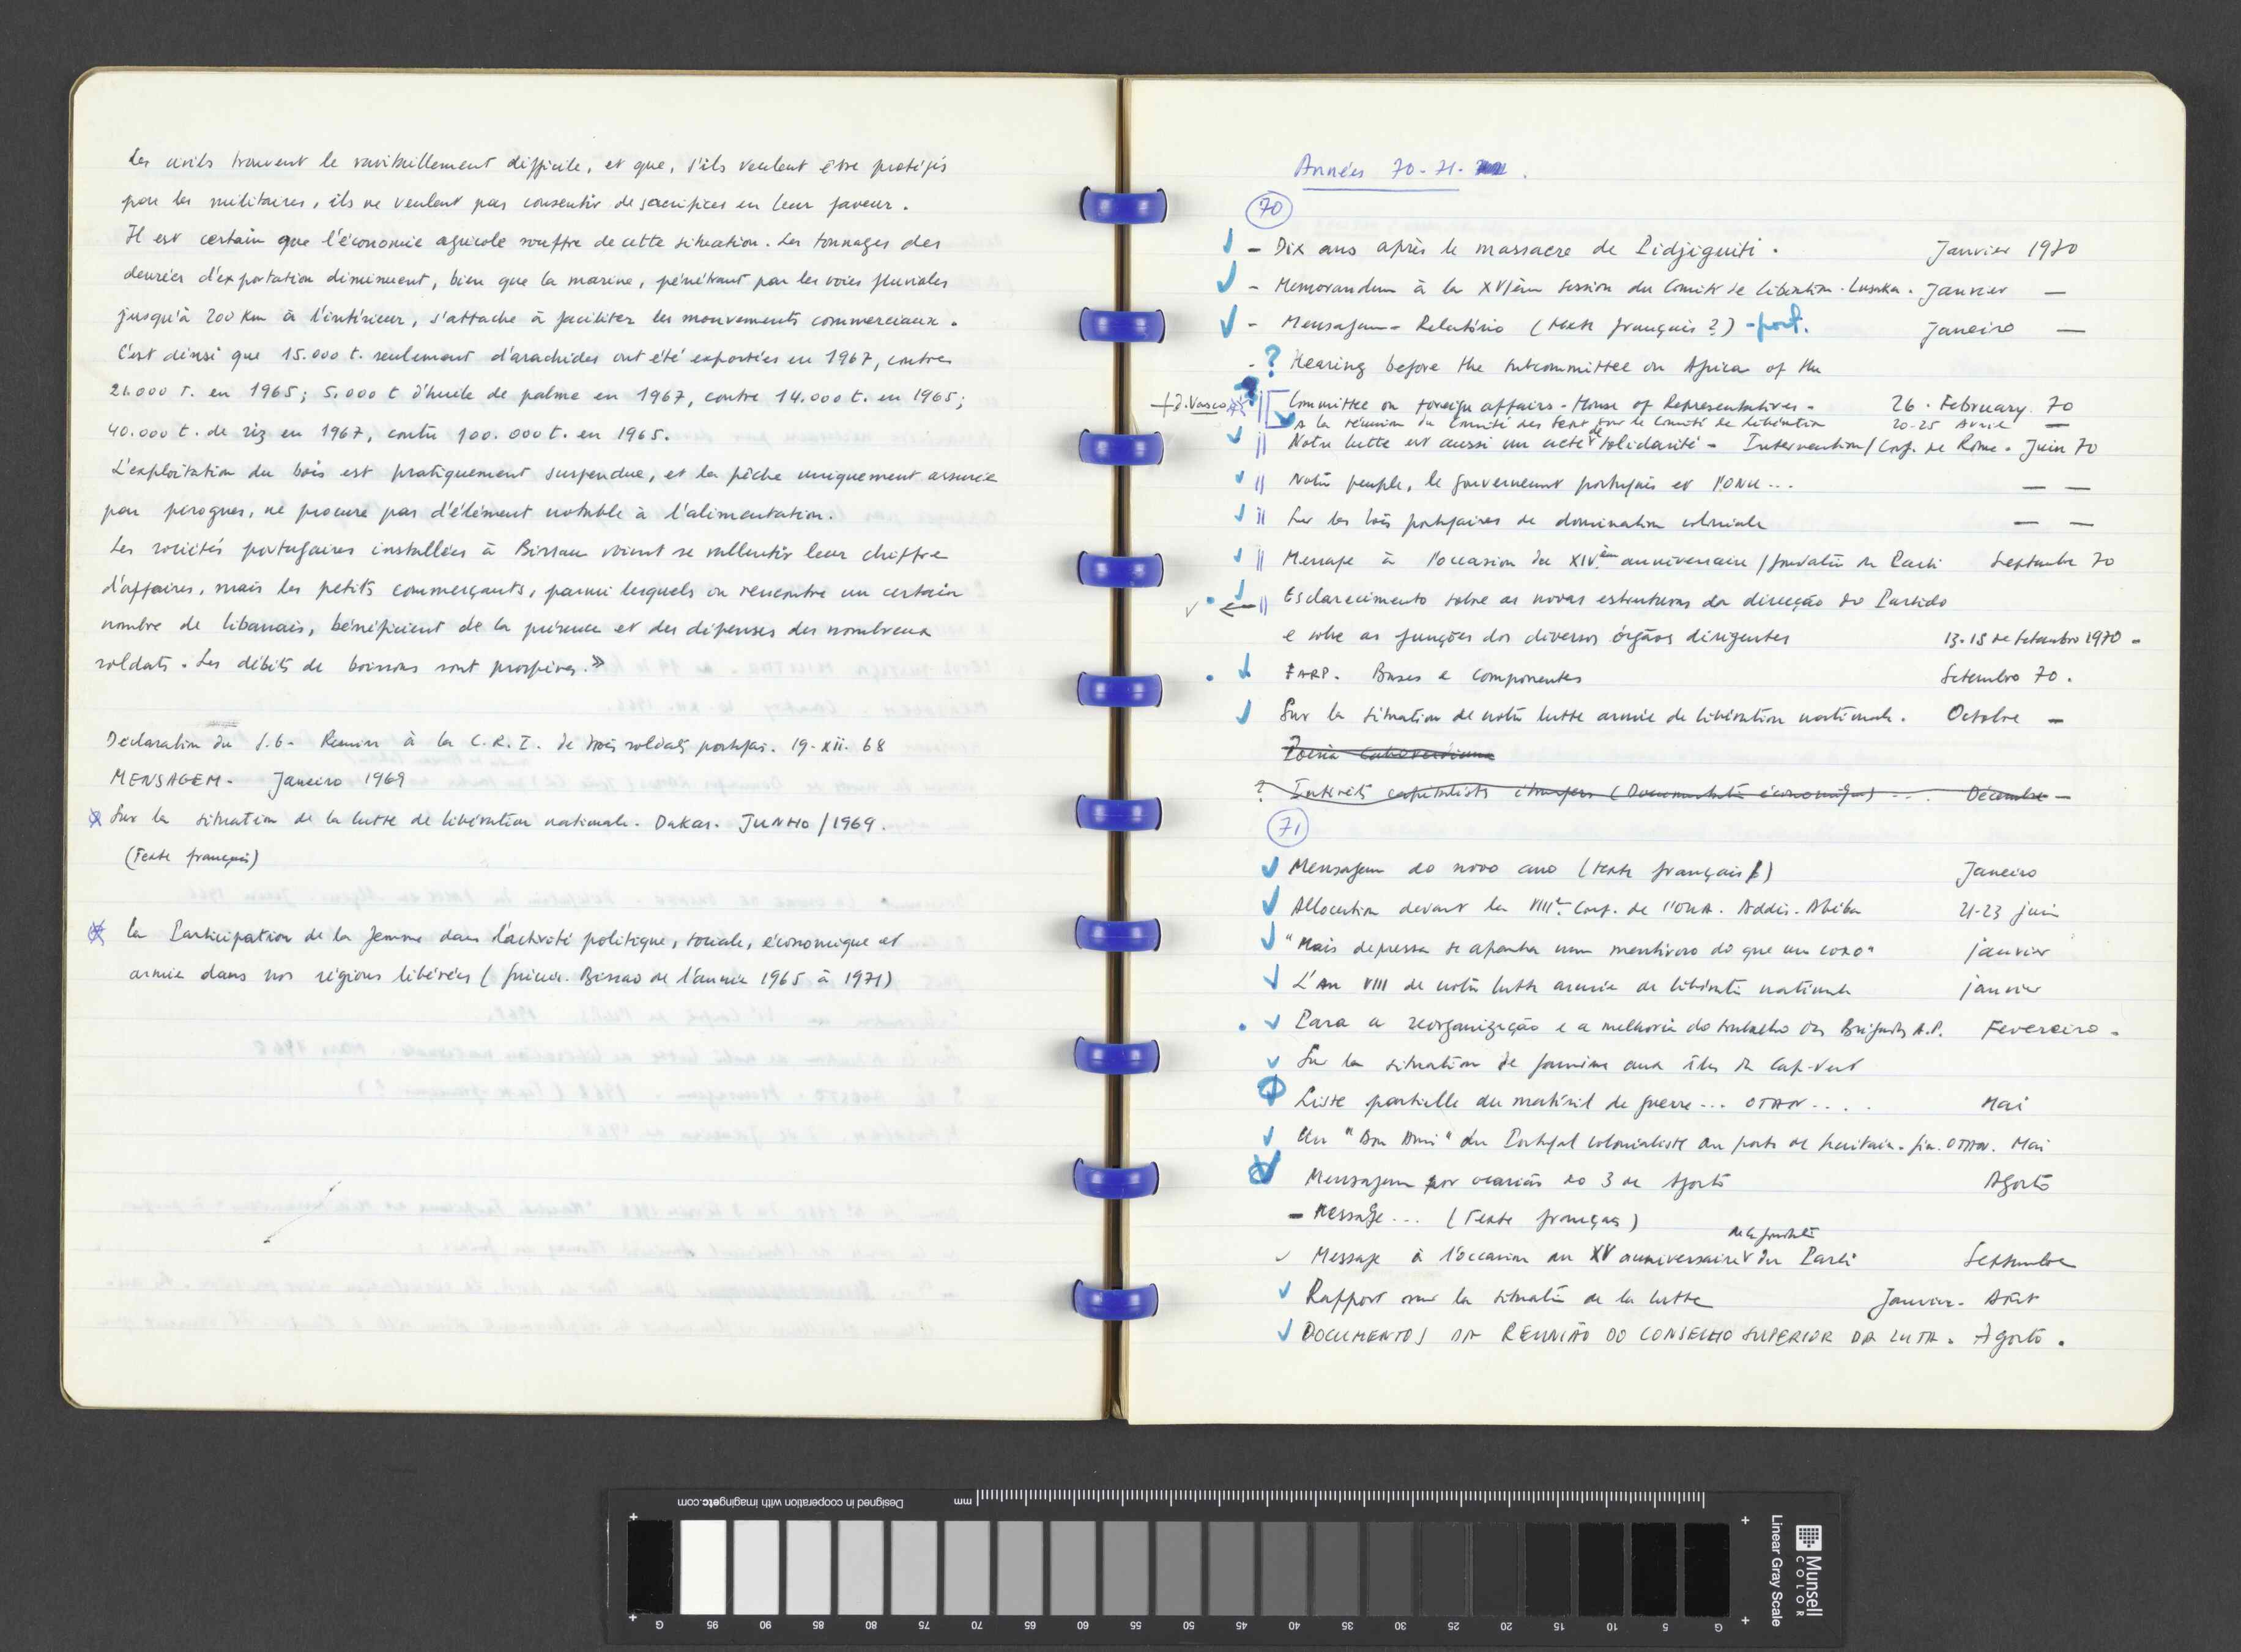 Les civils trouvent le ravitaillement difficile, et que, s'ils veulent être protégés
par les militaires, ils ne veulent pas consentir de sacrifices en leur faveur.
Il est certain que l'économie agricole souffre de cette situation. Les tonnages des
denrées d'exportation diminuent, bien que la marine, pénétrant par les voies fluviales
jusqu'à 200 km à l'intérieur, s'attache à faciliter les mouvements commerciaux.
C'est ainsi que 15.000 t. seulement d'arachides ont été exportées en 1967, contre
21.000 T. en 1965; 5.000 t d'huile de palme en 1967, contre 14.000 t. en 1965;
40.000 t. de riz en 1967, contre 100.000 t. en 1965.
L'exploitation du bois est pratiquement suspendue, et la pêche uniquement assurée
par pirogues, ne procure pas d'élément notable à l'alimentation.
Les sociétés portugaises installées à Bissau voient se rallentir leur chiffre
d'affaires, mais les petits commerçants, parmi lesquels on rencontre un certain
nombre de libanais, bénéficient de la présence et des dépenses des nombreux
soldats. Les débits de boissons sont prospères.»
Déclaration du S.G. Remise à la C.R.I. de trois soldats portugais. 19-XII-68
MENSAGEM - Janeiro 1969
Sur la situation de la lutte de libération nationale. Dakar. JUNHO/1969.
(Texte français)
La Participation de la femme dans l'activité politique, sociale, économique et
armée dans nos régions libérées (Guinée-Bissao de l'année 1965 à 1971)
Années 70-71-
70
- Dix ans après le massacre de Pidjiguiti. Janvier 1970
- Memorandum à la XVIème session du Comité de Libération - Lusaka. Janvier —
- Mensagem - Relatório (texte français?) - port. Janeiro —
- ? Hearing before the subcommittee on Africa of the
+ J. Vasco Committee on foreign affairs - House of Representatives - 26 - February 70
A la réunion du Comité des sur le Comité de Libération 20-25 Avril —
Notre lutte est aussi un acte de solidarité - Intervention/Conf. de Rome. Juin 70
Notre peuple, le gouvernement portugais et l'ONU... — —
Sur les lois portugaises de domination coloniale — —
Message à l'occasion du XIVème anniversaire/fondation du Parti Septembre 70
Esclarecimento sobre as novas estruturas da direcção do Partido
e sobre as funções dos diversos órgãos dirigentes 13-15 de Setembro 1970 -
FARP. Bases e componentes Setembro 70.
Sur la situation de notre lutte armée de libération nationale. Octobre —
Poesia Caboverdiana
? Intérêts capitalistes étrangers (Documentation économique) ... Décembre —
71
Mensagem do novo ano (texte français) Janeiro
Allocution devant la VIIIe Conf. de l'OUA. Addis-Abéba 21-23 juin
"Mais depressa se apanha um mentiroso do que um coxo" janvier
L'An VIII de notre lutte armée de libération nationale janvier
Para a reorganização e a melhoria do trabalho das Brigadas A.P. Fevereiro.
Sur la situation de famine aux îles du Cap-Vert
Liste partielle du matériel de guerre... OTAN.... Mai
Un "Bon Ami" du Portugal colonialiste au poste de secrétaire-gén. OTAN. Mai
Mensagem por ocasião do 3 de Agosto Agosto
- Message... (Texte français)
de la fondation
Message à l'occasion du XV anniversaire du Parti Septembre
Rapport sur la situation de la lutte Janvier - Août
DOCUMENTOS DA REUNIÃO DO CONSELHO SUPERIOR DA LUTA. Agosto.
Designed in cooperation with imagingetc.com
mm
Munsell
COLOR
Linear Gray Scale
G 95 90 85 80 75 70 65 60 55 50 45 40 35 30 25 20 15 10 5 G